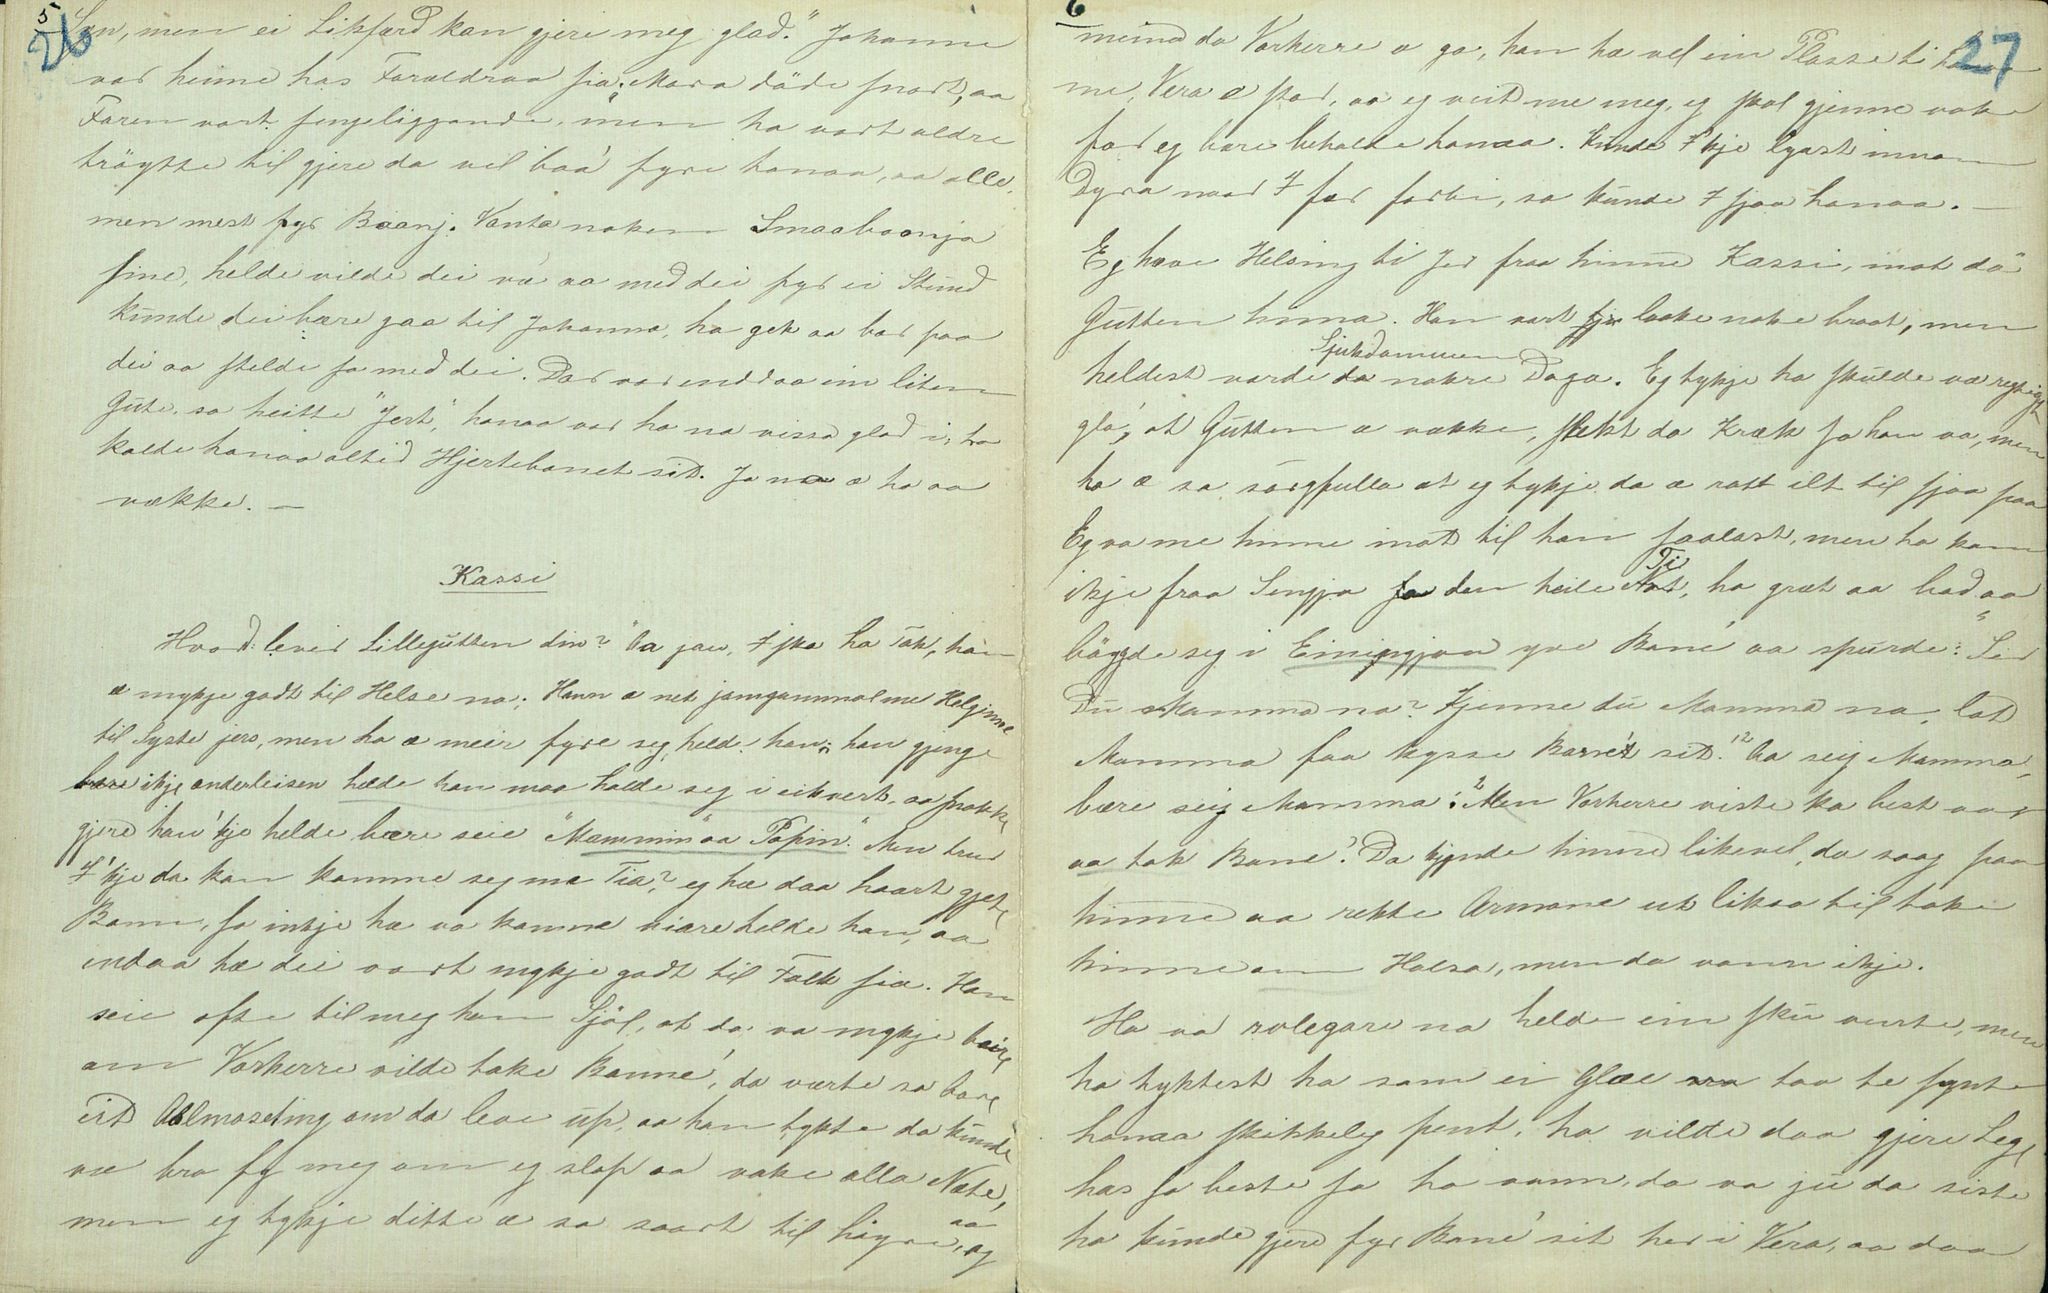 5
26
Søn, men ei Likfærd kan gjere meg glad." Johanne
var heime has Foraldraa sia; Mora döde snart, aa
Faren vart sengeliggande, men ho vart aldre
tröytte til gjere da vel baa' fyre honaa, aa alle,
men mest fyr Baanj. Vanta noken Smaabaanja
sine, helde vilde dei va aa med dei fyr ei Stund
kunde dei bære gaa til Johanna, ho gek aa bar paa
dei aa stelde so med dei. Dar var enddaa ein liten
Gute, so heitte "Jert", honaa var ho na vissa glad i, ho
kalde honaa altid Hjertebanet sit. Ja na æ ho aa
vække. —
Kassi
Hvord lever Lillegutten din? "Aa jau, I ska ha Tak, han
æ mykje godt til Helse no; Hann æ net jamgammal me Helgjine
til Syste jers, men ho æ meir fyre seg, held han; han gjeng
ikje anderleisen hælde han maa halde seg i eikvert, aa snakke
gjere han'kje helde bære seie "Mammin" aa "Papin". Men trur
I'kje da kan komme seg me Tia? eg hæ daa haart gjete
Bann, so inkje hæ va komne viare helde han, aa
endaa hæ dei vort mykje godt til Folk sia. Han
seie ofte til meg han Sjöl, at da va mykje beire
om Vorherre vilde take Banne', da værte so bare
eit Aalmoseting om da leve up, aa han tykte da kunde
væ bra fy meg om eg slap aa vake alla Næte,
men eg tykje ditte æ so saart til högre, og
aa
6
27
meined da Vorherre o ga, han hæ vel ein Plasse ti
me, Vera æ stor, aa eg veit me meg, eg skal gjenne vake
for eg bare behalde honaa. Kunde I'kje lyast innom
Dyra naar I far forbi, so kunde I sjaa honaa. —
Eg have Helsing ti Jer fraa hinne Kassi, inot dö
Gutten hinna. Han vart laake nake braat, men
Sjukdommen
heldest varde da nokre Daga. Eg tykje ho skulde væ regtigt
gla', at Gutten æ vække, slikt da Kræk so han va, men
ho æ so sörgfulla at eg tykje da æ ratt ilt til sjaa paa
Eg va me hinne inot til han saalast, men ho kom
Ti
ikje fraa Sengja so den heile, ho græt aa bad aa
böygde seg i Einingjaa yve Bane' aa spurde: "Ser
Du Mamma no? Kjenne du Mamma no, lat
Mamma faa kysse Barnet sit? Aa seig Mamma,
bære seig Mamma:" Men Vorherre viste ka best var
aa tok Bane'. Da kjende hinne likevel, da saag paa
hinne aa rekte Armane ut likso til take
hinne om Halsa, men da vann ikje.
Ho va rolegare no helde ein sku venta, men
ho tyktest ha som ei Glæe taa te synte
honaa skikkeleg pent, ho vilde daa gjere Lege
has so beste so ho vann, da va ju da siste
ho kunde gjere fyr Bane' sit her i Vera, aa daa